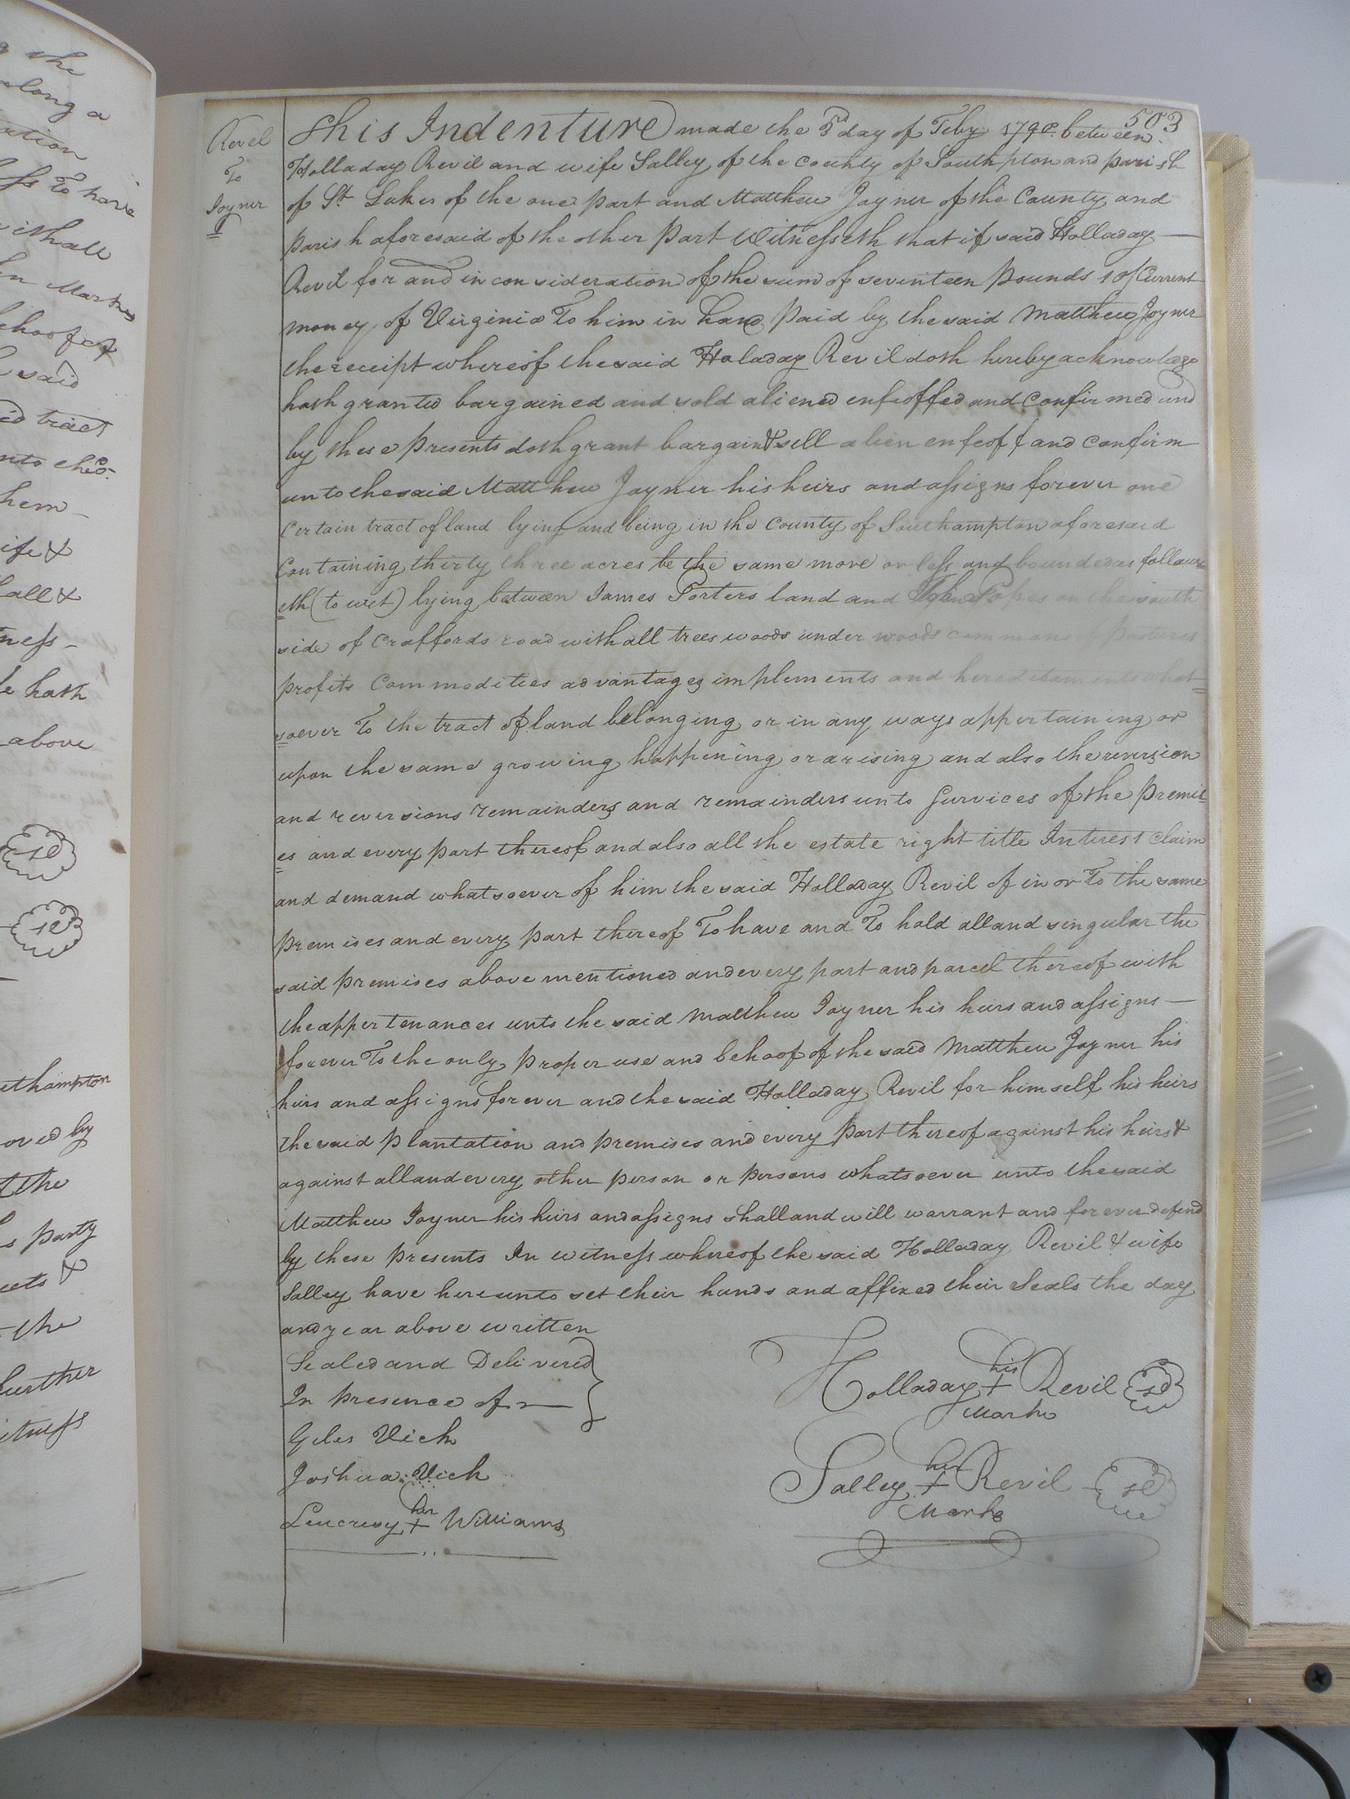 503
Revel
To
Joyner
This Indenture made the 3d day of Feby 1790 between
Holladay Revil and wife Salley of the county of Southpton and parish
of St. Lukes of the one part and Matthew Joyner of the County and
parish aforesaid of the other part Witnesseth that if said Holladay
Revil for and in consideration of the sum of seventeen pounds 10/ Current
money of Virginia To him in hand paid by the said Matthew Joyner
the receipt whereof the said Holaday Revil doth hereby acknowledge
hath granted bargained and sold aliened enfeoffed and confirmed and
by these presents doth grant bargain & sell alien enfeoff and confirm
unto the said Matthew Joyner his heirs and assigns forever one
Certain tract of land lying and being in the County of Southampton aforesaid
Containing thirty three acres be the same more or less and bounded as follow
eth (to wit) lying between James Porters land and John Popes on the south
side of Craffords road with all trees woods under woods commons pastures
profits Commodities advantages implements and hereditaments what
soever To the tract of land belonging or in any ways appertaining or
upon the same growing happening or arising and also the reversion
and reversions remainders and remainders unto Survices of the premis
es and every part thereof and also all the estate right title Interest claim
and demand whatsoever of him the said Holladay Revil of in or To the same
premises and every part thereof To have and To hold all and singular the
said premises above mentioned and every part and parcel thereof with
the appertenances unto the said Matthew Joyner his heirs and assigns
forever To the only proper use and behoof of the said Matthew Joyner his
heirs and assigns forever and the said Holladay Revil for himself his heirs
the said plantation and premises and every part thereof against his heirs &
against all and every other person or persons whatsoever unto the said
Matthew Joyner his heirs and assigns shall and will warrant and forever defend
by these presents In witness whereof the said Holladay Revil & wife
Salley have hereunto set their hands and affixed their Seals the day
and year above written
Sealed and Delivered
In presence of
Giles Vick
Joshua Vick
her
Leucresy + Williams
his
Holladay + Revil se
Mark
her
Salley + Revil se
Mark
g the
along a
To have
withall
Martin
behoof of
said
tract
hem
ife &
all &
ness
hath
above
se
se
uthampton
oved by
the
party
&
the
further
itness